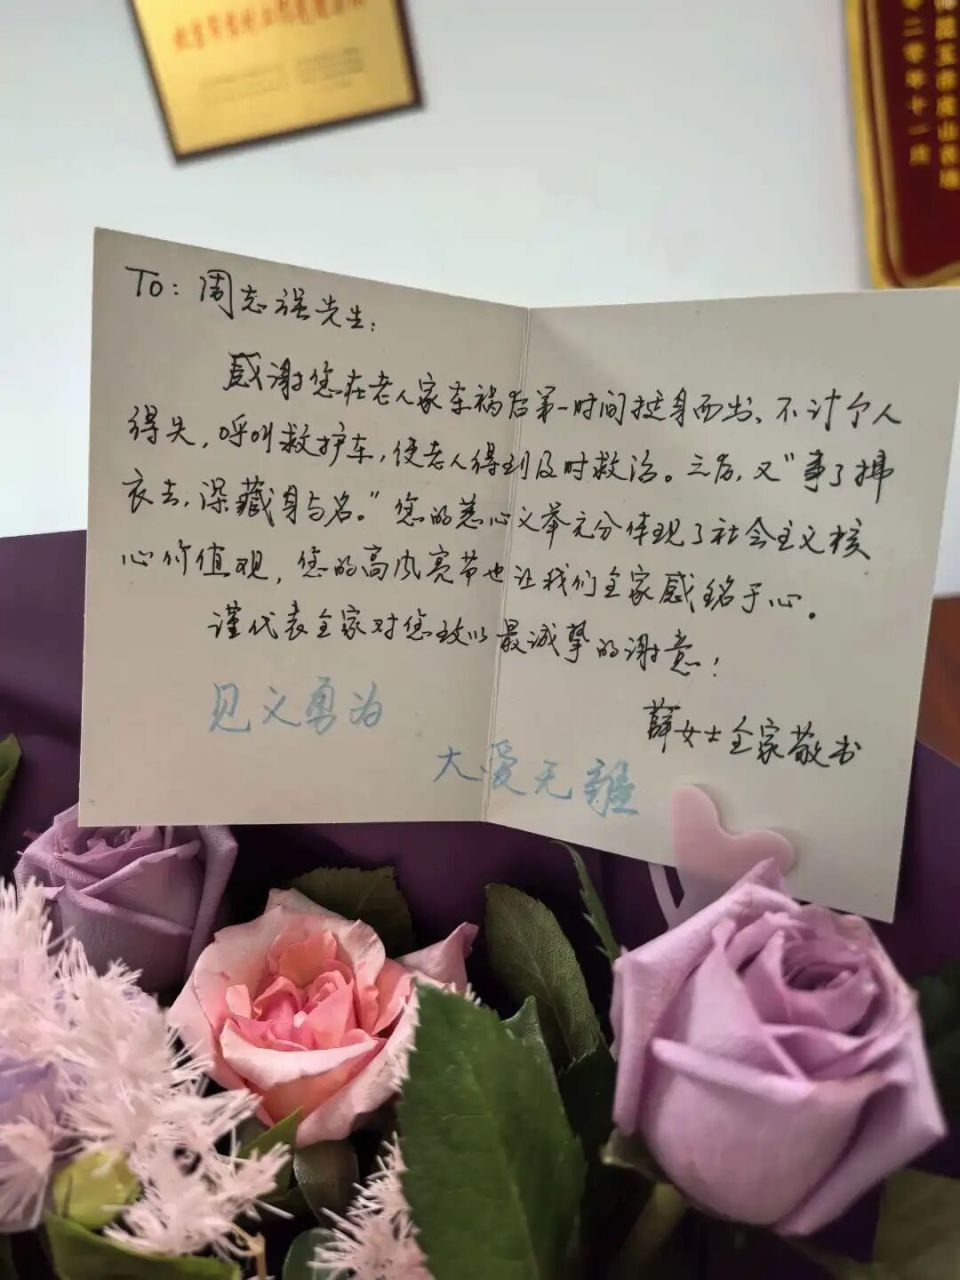 To: 周志强先生:
感谢您在老人家车祸后第一时间挺身而出、不计个人
得失，呼叫救护车，使老人得到及时救治。之后，又“事了拂
衣去，深藏身与名。”您的慈心义举充分体现了社会主义核
心价值观，您的高风亮节也让我们全家感铭于心。
谨代表全家对您致以最诚挚的谢意！
薛女士全家敬书
见义勇为
大爱无疆
零二零年十一月